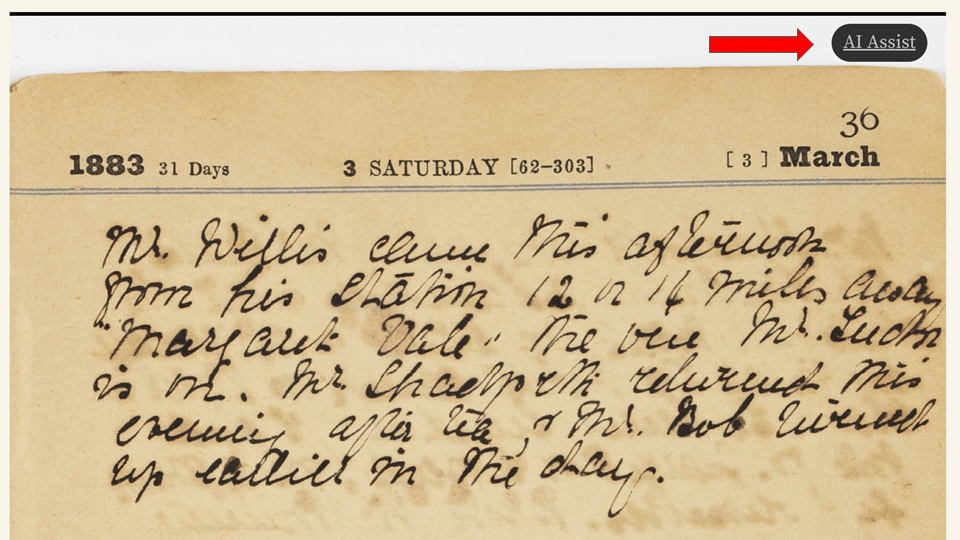 AI Assist
36
1883 31 Days 3 SATURDAY [62-303] [ 3 ] March
Mr. Willis came this afternoon
from his station 12 or 14 miles away
"Margaret Vale" the one Mr.
is on. Mr. returned this
evening after tea, & Mr. Bob turned
up earlier in the day.